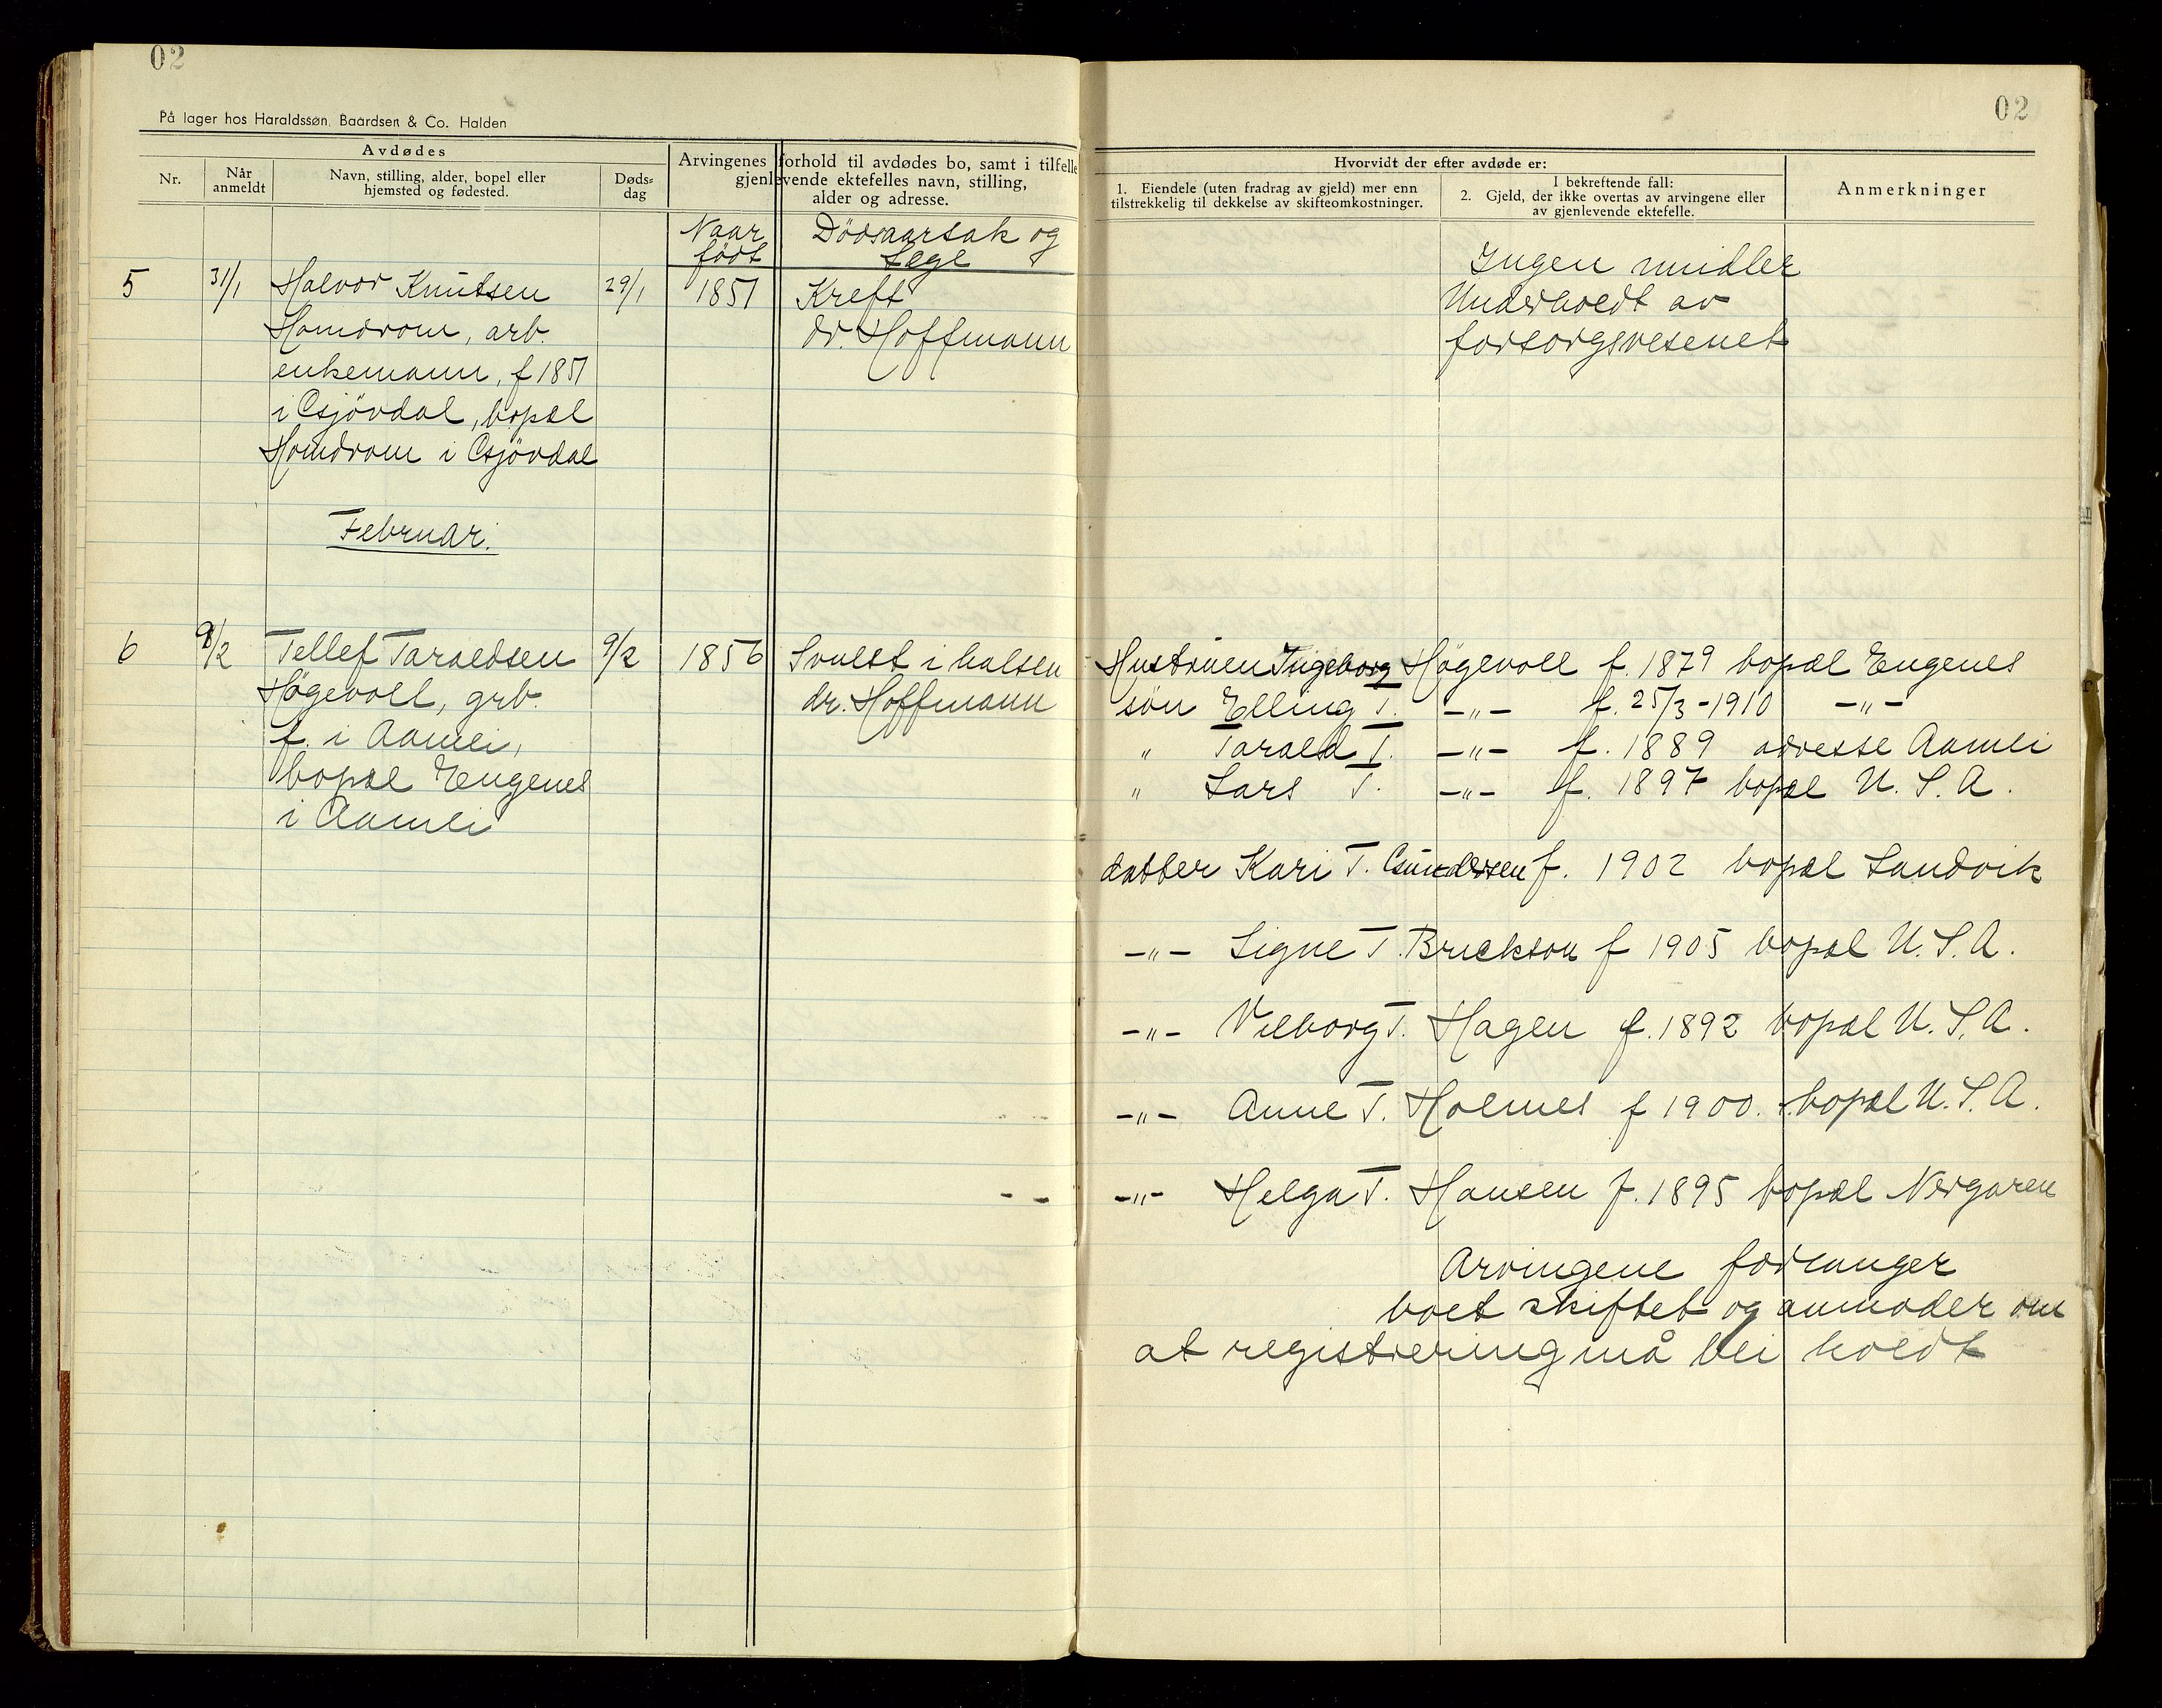 02
På lager hos Haraldssøn, Baardsen & Co. Halden
Avdødes
Nr.
Når
anmeldt
Navn, stilling, alder, bopel eller
hjemsted og fødested.
Døds-
dag
Arvingenes forhold til avdødes bo, samt i tilfelle
gjenlevende ektefelles navn, stilling,
alder og adresse.
Naar
født
Dödsaarsak og
Læge
5
31/1
Halvor Knutsen
Homdrom, arb.
enkemann, f 1851
i Gjövdal, bopæl
Homdrom i Gjövdal
29/1
1851
Kreft
dr. Hoffmann
Februar.
6
9/2
Tellef Taraldsen
Högevoll, grb.
f. i Aamli,
bopæl Engenes
i Aamli
9/2
1856
Svulst i halsen
dr. Hoffmann
02
Hvorvidt der efter avdøde er:
1. Eiendele (uten fradrag av gjeld) mer enn
tilstrekkelig til dekkelse av skifteomkostninger.
I bekreftende fall:
2. Gjeld, der ikke overtas av arvingene eller
av gjenlevende ektefelle.
Anmerkninger
Ingen midler
Underholdt av
forsorgsvesenet
Hustruen Ingeborg Högevoll f. 1879 bopæl Engenes
sön Elling T. -"- f. 25/3-1910 -"-
" Tarald T. -"- f. 1889 adresse Aamli
" Lars T. -"- f. 1897 bopæl U.S.A.
datter Kari T. Gundersen f. 1902 bopæl Sandvik
-"- Signe T. Bruckson f 1905 bopæl U.S.A.
-"- Vilborg T. Hagen f. 1892 bopæl U.S.A.
-"- Anne T. Holmes f 1900. bopæl U.S.A.
-"- Helga T. Hansen f. 1895 bopæl Nergaren
Arvingene forlanger
boet skiftet og anmoder om
at registrering må bli holdt